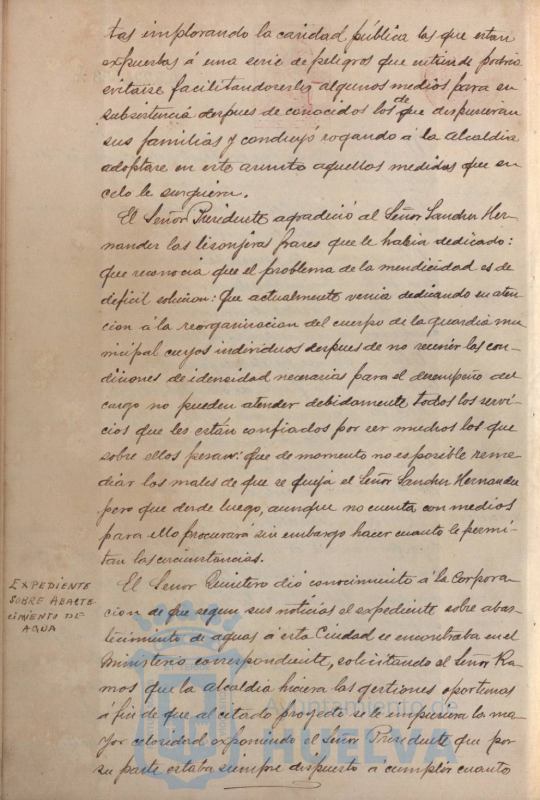 tas implorando la caridad pública las que estan
expuestas á una serie de peligros que entiende podria
evitarse facilitandoserles algunos medios para su
subsistencia despues de conocidos los de que dispusieran
sus familias y concluyó rogando á la Alcaldia
adoptase en este asunto aquellas medidas que su
celo le surguiera.
El Señor Presidente agradeció al Señor Sanchez Her-
nandez las lisonjeras frases que le habia dedicado:
que reconocia que el problema de la mendicidad es de
dificil solucion: Que actualmente venia dedicando su aten-
cion á la reorganizacion del cuerpo de la guardia mu-
nicipal cuyos individuos despues de no reunir las con-
diciones de idoneidad necesarias para el desempeño del
cargo no pueden atender debidamente todos los servi-
cios que les están confiados por ser muchos los que
sobre ellos pesan: que de momento no es posible reme-
diar los males de que se queja el Señor Sanchez Hernandez
pero que desde luego, aunque no cuenta con medios
para ello procurará sin embargo hacer cuanto le permi-
tan las circunstancias.
EXPEDIENTE
SOBRE ABASTE-
CIMIENTO DE
AGUA
El Señor Quintero dió conocimiento á la Corpora-
cion de que segun sus noticias el expediente sobre abas-
tecimiento de aguas á esta Ciudad se encontraba en el
Ministerio correspondiente, solicitando el Señor Ra-
mos que la Alcaldia hiciera las gestiones oportunas
á fin de que al citado proyecto se le imprimiera la ma-
yor celeridad exponiendo el Señor Presidente que por
su parte estaba siempre dispuesto á cumplir cuanto
Ayuntamiento de
HUELVA